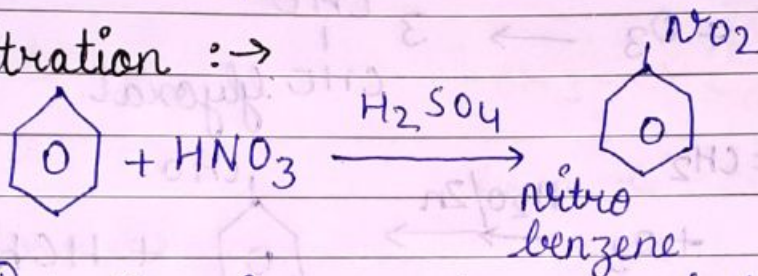 tration :→
NO2
H2SO4
+ HNO3 ⟶
nitro
benzene